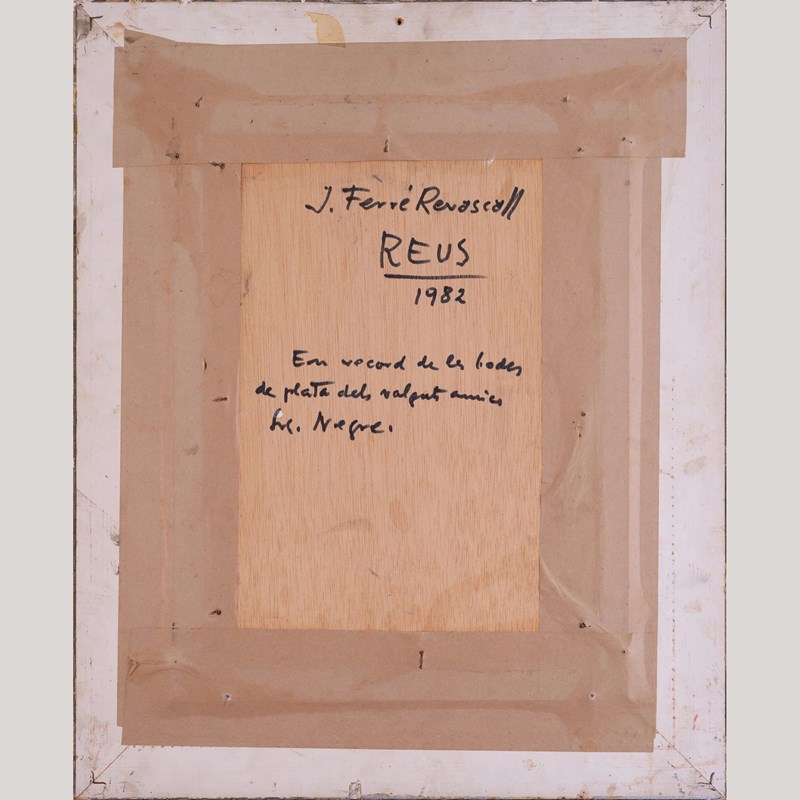 J. Ferré Revascall
REUS
1982
En record de les bodes
de plata dels volguts amics
Srs. Negre.